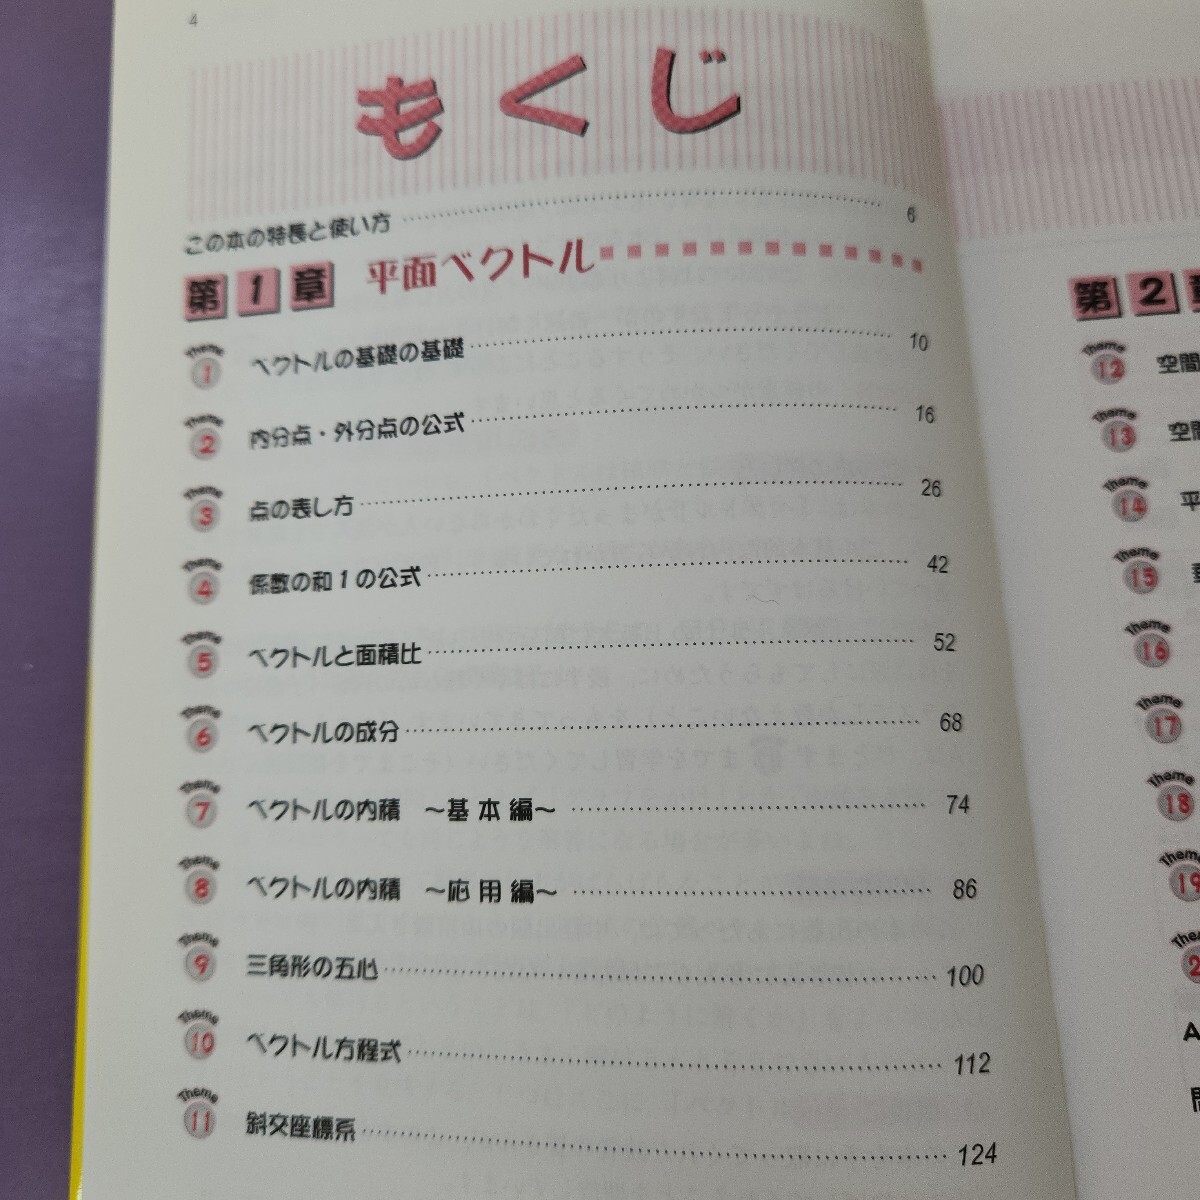 4
もくじ
この本の特長と使い方 6
第1章 平面ベクトル
Theme 1 ベクトルの基礎の基礎 10
Theme 2 内分点・外分点の公式 16
Theme 3 点の表し方 26
Theme 4 係数の和1の公式 42
Theme 5 ベクトルと面積比 52
Theme 6 ベクトルの成分 68
Theme 7 ベクトルの内積 ～基本編～ 74
Theme 8 ベクトルの内積 ～応用編～ 86
Theme 9 三角形の五心 100
Theme 10 ベクトル方程式 112
Theme 11 斜交座標系 124
第2章
Theme 12 空間
Theme 13 空間
Theme 14 平
Theme 15
Theme 16
Theme 17
Theme 18
Theme 19
A
問